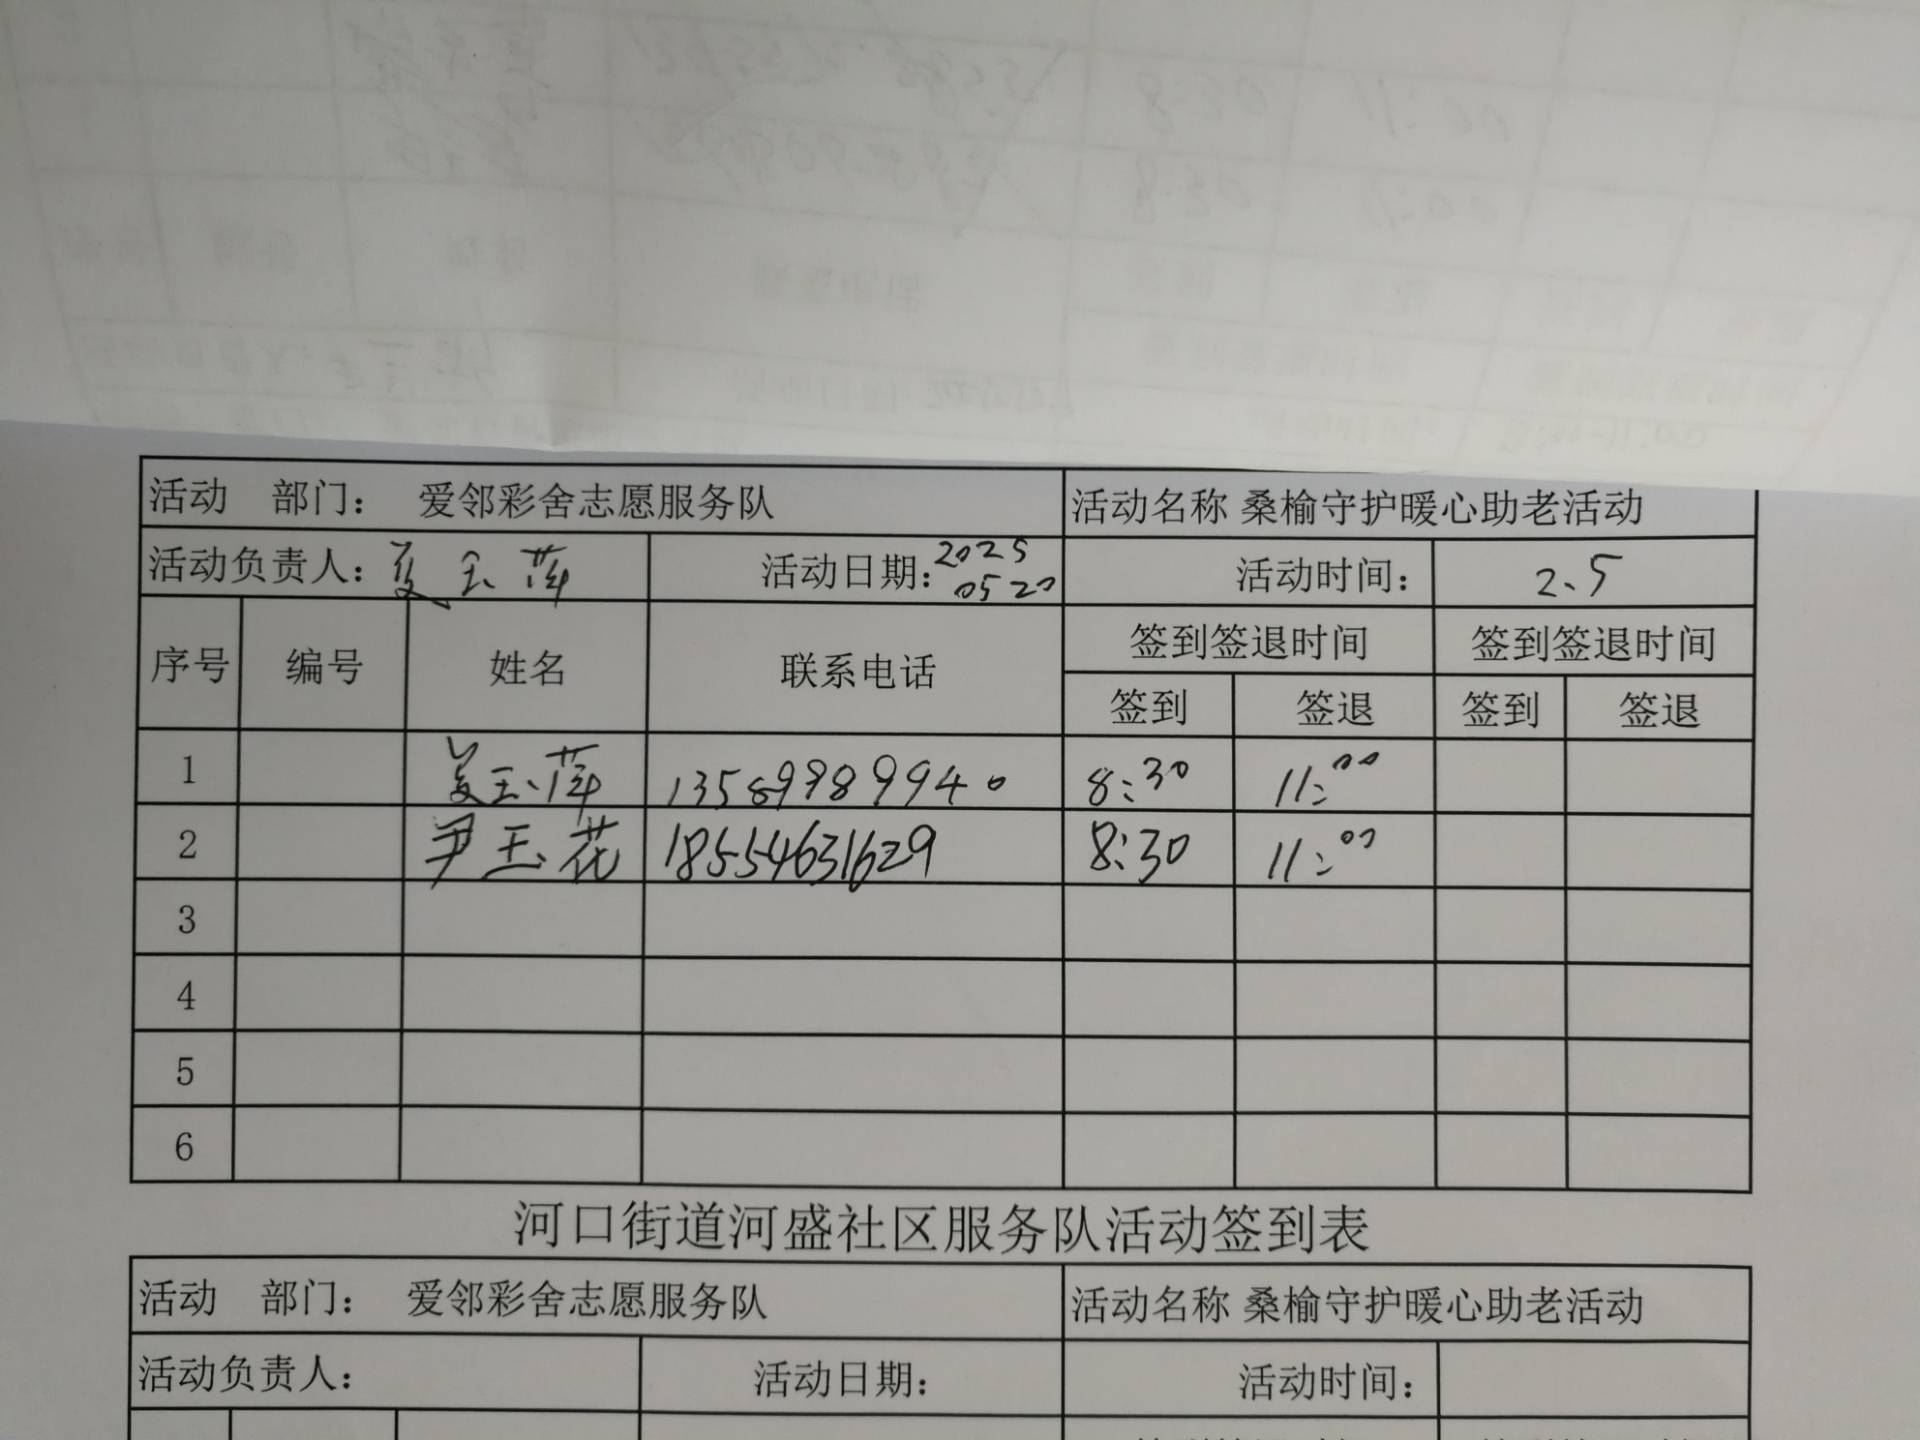 活动 部门： 爱邻彩舍志愿服务队 活动名称 桑榆守护暖心助老活动
活动负责人： 玉萍 活动日期： 2025 0520 活动时间： 2.5
序号 编号 姓名 联系电话 签到签退时间 签到签退时间
签到 签退 签到 签退
1 玉萍 13589989940 8:30 11:00
2 尹玉花 18554631629 8:30 11:00
3
4
5
6
河口街道河盛社区服务队活动签到表
活动 部门： 爱邻彩舍志愿服务队 活动名称 桑榆守护暖心助老活动
活动负责人： 活动日期： 活动时间：